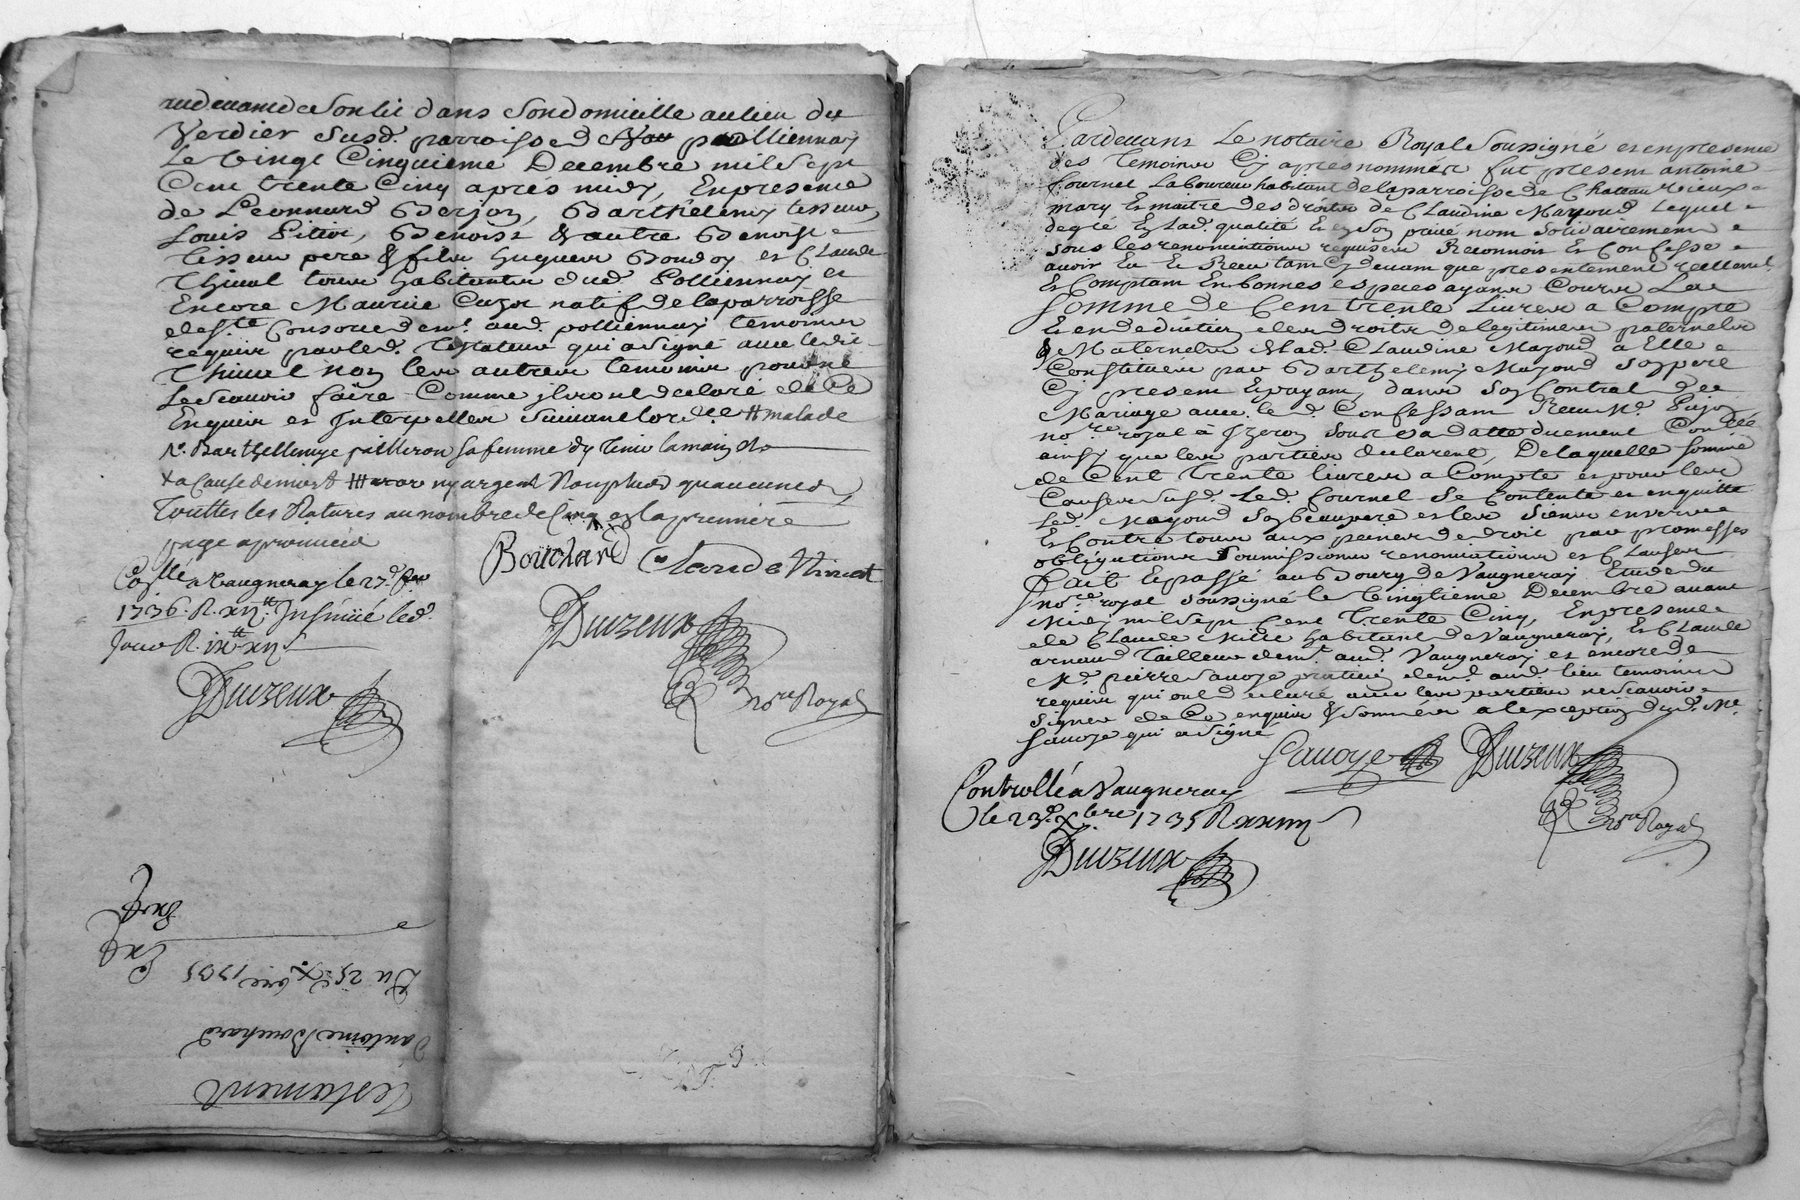 audevant de son lit dans son domicille au lieu du
Verdier susd. parroisse de pollionnay
Le vingt Cinquieme Decembre mil sept
Cent trente Cinq apres midy, En presence
de Leonnard Berjon, Barthelemy tisseur
Louis Pitiot, Benoist & autre Benoist
Tisseur pere & fils hugues Boudoy et Claude
Thinet tous habitants dud. Pollionnay et
Encore Maurice natif de la parroisse
de Ste Consorce demt. aud. pollionnay temoins
requis par led. Testateur qui a signé avec led.
Thinet non les autres temoins pour ne
Le scavoir faire Comme ils ont declaré de Ce
Enquis et Interpelles suivant lordce # malade
Barthellemye pailleron sa femme
a cause de mort ny argent Non plus
Touttes les Ratures au nombre de Cinq en la premiere
page aprouvées
Bouchard Claude Thinet
Collé a Vaugneray le 27e
1736. R. xij tt Insinué led.
Jour R. ix tt xij s
Duizeux
Nore Royal
Duizeux
Testament
d'antoine Bouchard
Du 25e Xbre 1735
Exp
Exp
Pardevant Le notaire Royal soussigné et en presence
des temoins Cy apres nommés fut present antoine
fournel Laboureur habitant de la parroisse de Chateauvieux
mary Et maitre des droits de Claudine Mazond Lequel
de gré Et lad. qualité Et en son privé nom solidairement
sous les renonciations requises Reconnoit Et Confesse
avoir Eu Et Receu tant Cy devant que presentement reellemt.
Et Comptant En bonnes especes ayant Cours La
somme de Cent trente Livres a Compte
Et en deduction des droits de legitimes paternels
& Maternels de lad. Claudine Mazond a Elle
Constitués par Barthelemy Mazond son pere
Cy present Et payant, dans son Contrat de
Mariage avec le d. Confessant Receu Me. Pujon
nore royal à Izeron sous sa datte duement Conllé
ainsy que les parties declarent, De laquelle somme
de Cent Trente livres a Compte et pour les
Causes susd. Led. fournel se Contente et en quitte
Led. Mazond son beaupere et les siens envers
Et Contre tous aux peines de droit par promesses
obligations soumissions renonciations et Clauses
Fait Et passé au Bourg de Vaugneray Etude du
nore royal soussigné le vingtieme Decembre avant
Midy mil sept Cent Trente Cinq, En presence
de Claude habitant de Vaugneray, Et Claude
arnaud Tailleur demt. aud. Vaugneray et encore de
Me. pierre Savoye praticien demt. aud. lieu temoins
requis qui ont declaré avec les parties ne scavoir
signer de Ce enquis & sommés a lexception dud. Me
Savoye qui a signé
Savoye Duizeux
Nore Royal
Controllé a Vaugneray
le 23e Xbre 1735 R xxiiij s
Duizeux